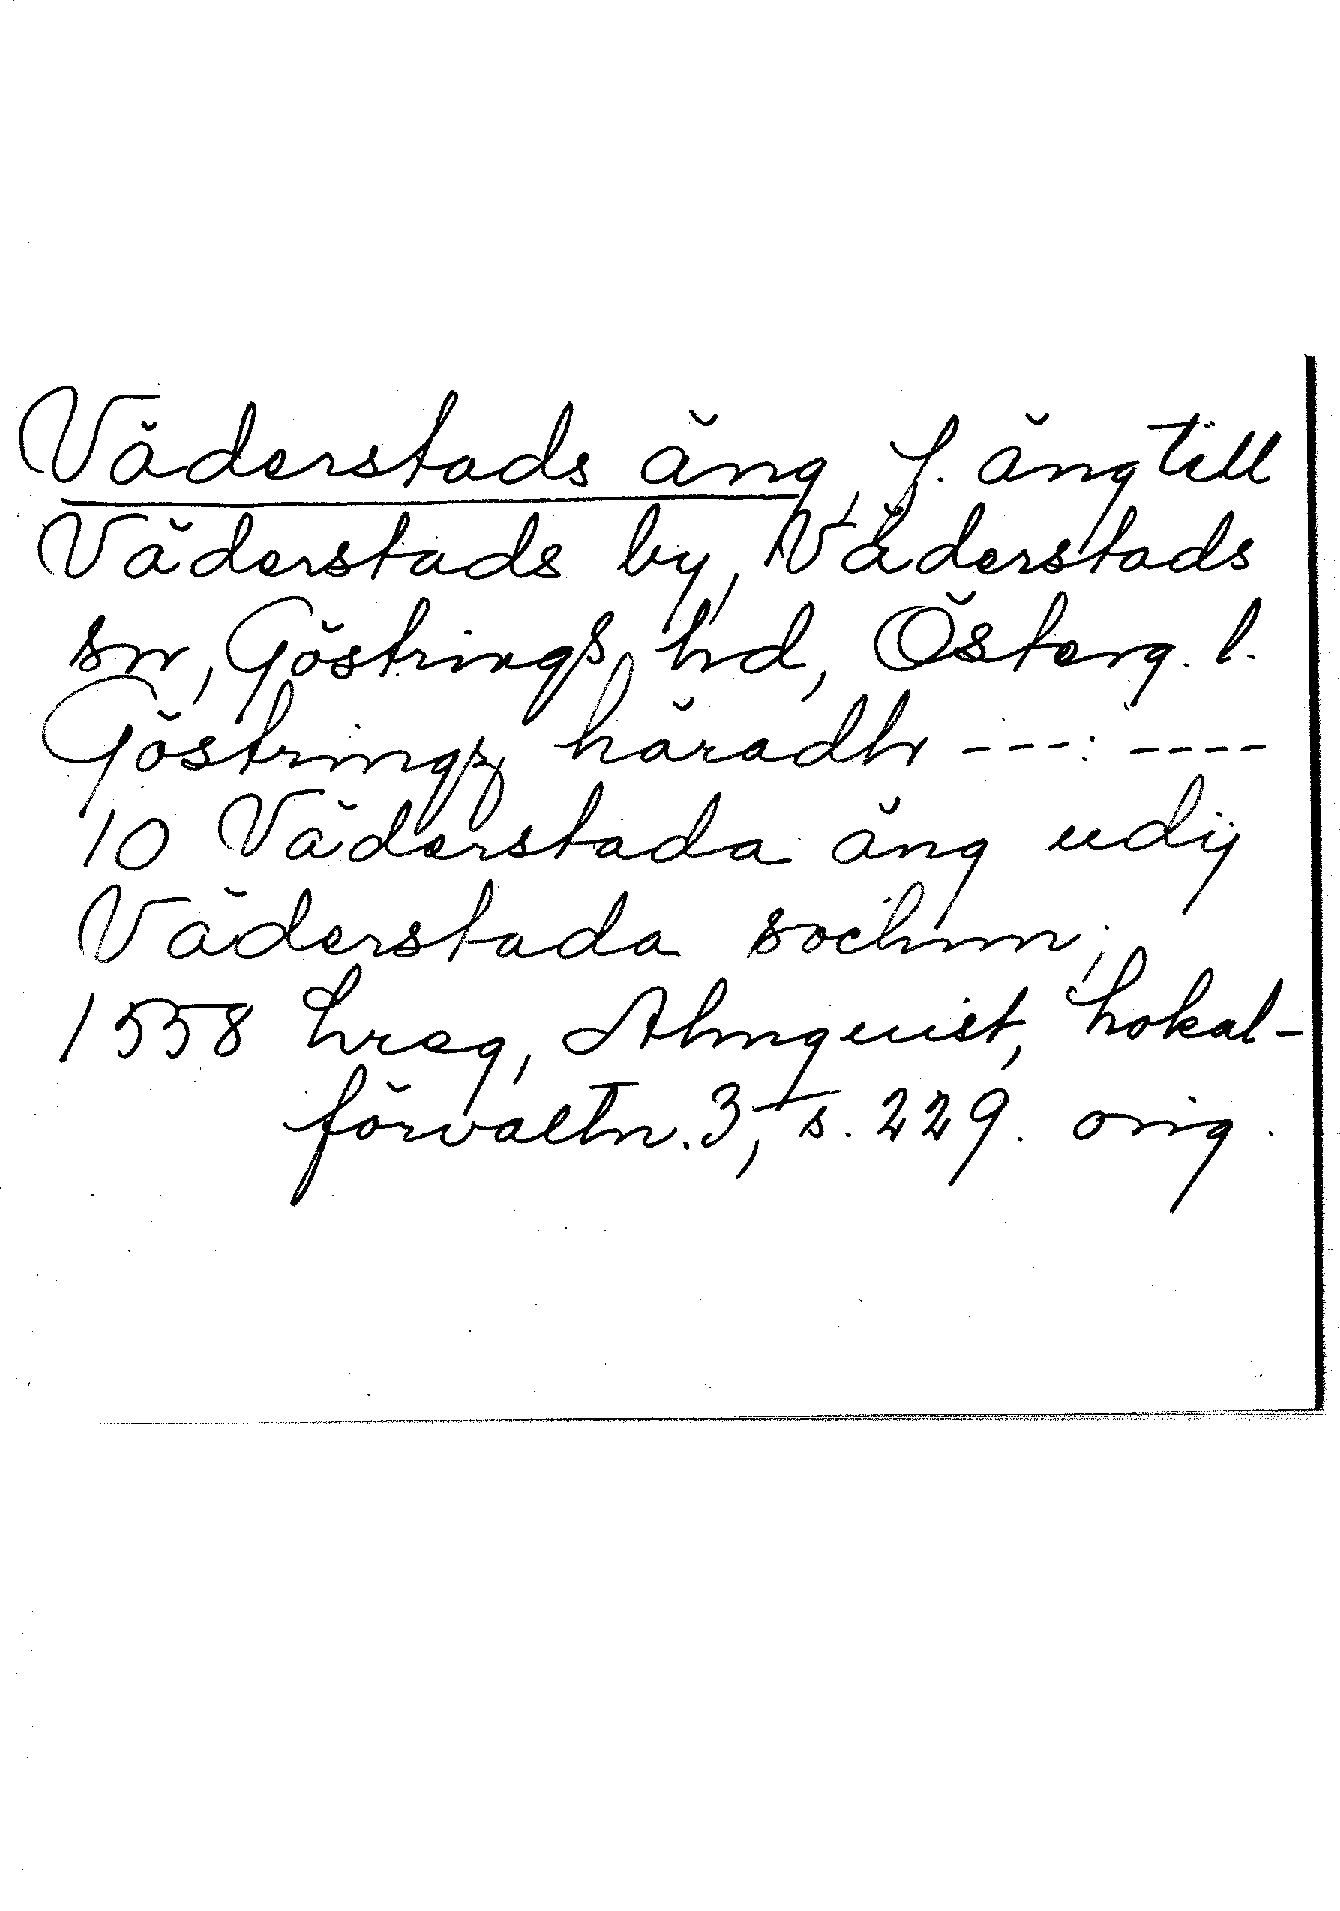 Väderstads äng, f. äng till
Väderstads by, Väderstads
sn, Göstrings hd, Österg. l.
Göstringz häradh ---: ----
10 Väderstada äng udij
Väderstada sochnn;
1558 hreg, Almquist, Lokal-
förvaltn. 3, s. 229. orig.